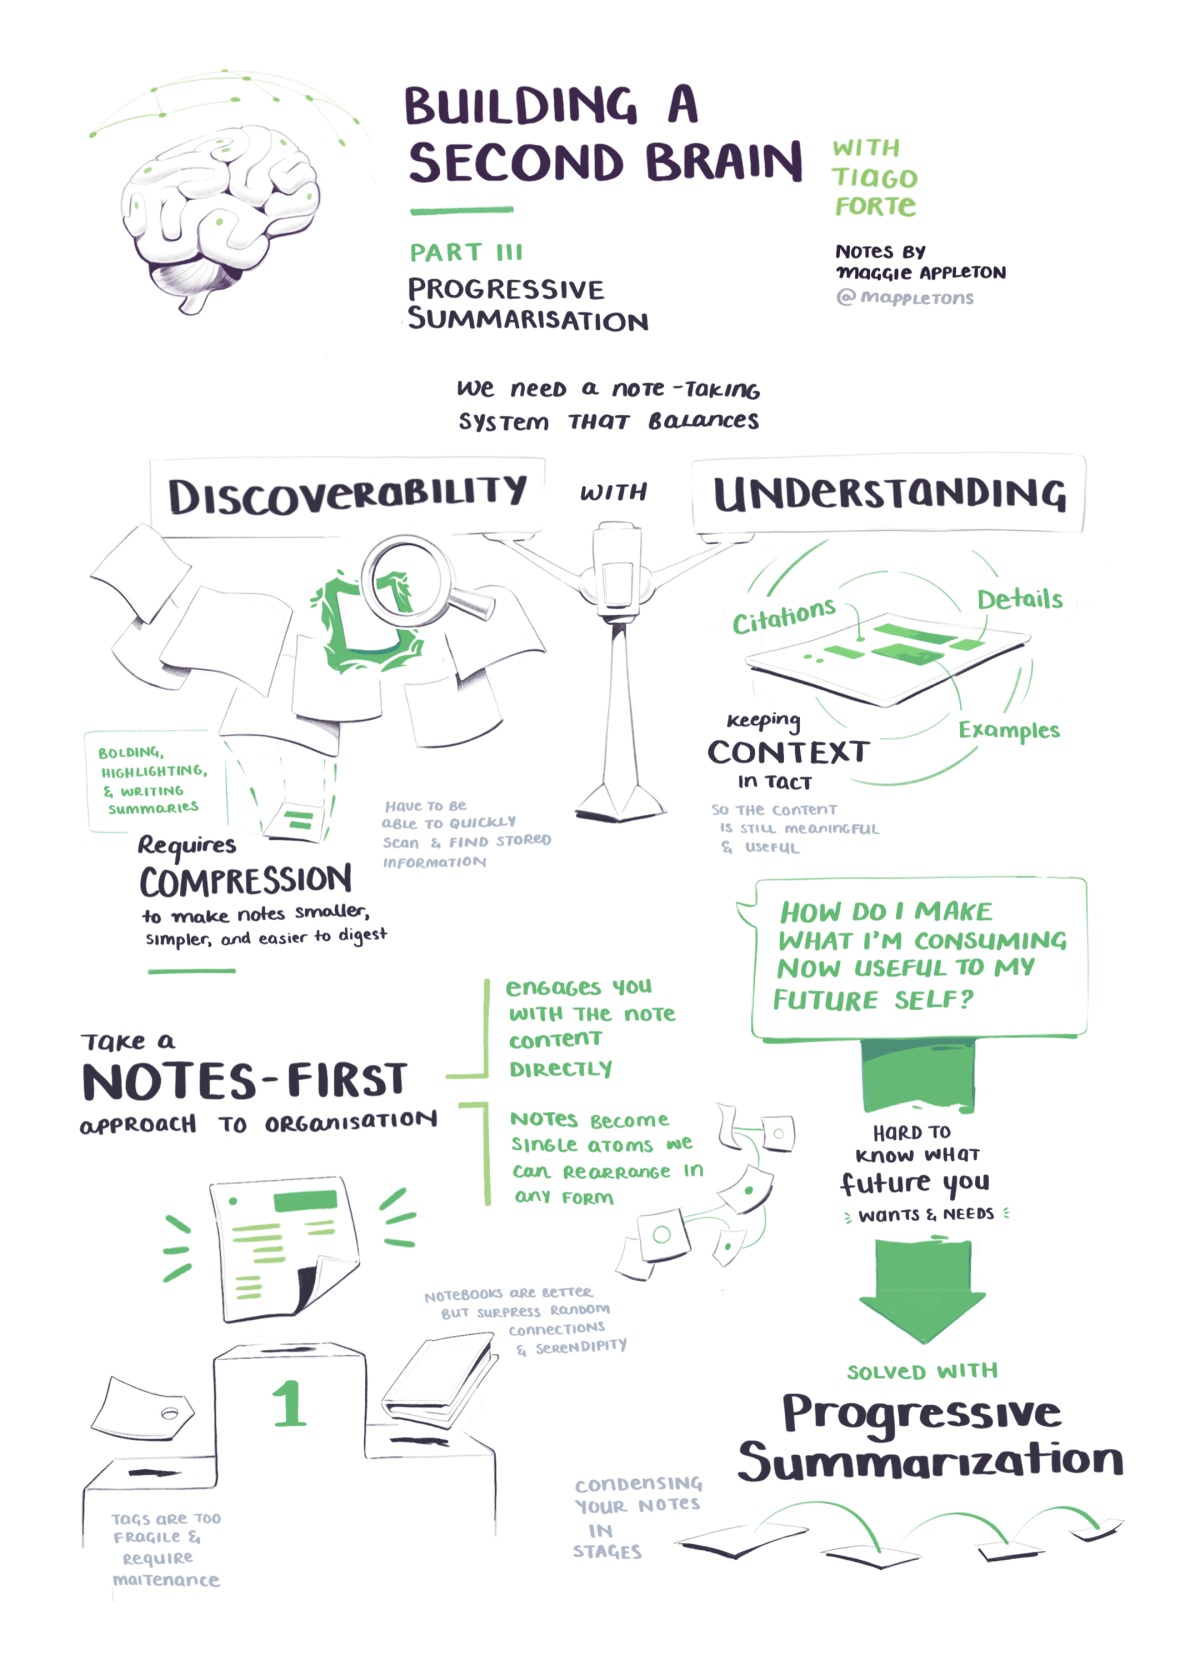 BUILDING A
SECOND BRAIN
WITH
TIAGO
FORTE
PART III
PROGRESSIVE
SUMMARISATION
NOTES BY
MAGGIE APPLETON
@MAPPLETONS
WE NEED A NOTE-TAKING
SYSTEM THAT BALANCES
DISCOVERABILITY
WITH
UNDERSTANDING
Citations
Details
Examples
BOLDING,
HIGHLIGHTING,
& WRITING
SUMMARIES
Requires
COMPRESSION
to make notes smaller,
simpler, and easier to digest
HAVE TO BE
ABLE TO QUICKLY
SCAN & FIND STORED
INFORMATION
Keeping
CONTEXT
IN TACT
SO THE CONTENT
IS STILL MEANINGFUL
& USEFUL
HOW DO I MAKE
WHAT I'M CONSUMING
NOW USEFUL TO MY
FUTURE SELF?
TAKE A
NOTES-FIRST
APPROACH TO ORGANISATION
ENGAGES YOU
WITH THE NOTE
CONTENT
DIRECTLY
NOTES BECOME
SINGLE ATOMS WE
CAN REARRANGE IN
ANY FORM
HARD TO
KNOW WHAT
future you
WANTS & NEEDS
NOTEBOOKS ARE BETTER
BUT SURPRESS RANDOM
CONNECTIONS
& SERENDIPITY
1
TAGS ARE TOO
FRAGILE &
REQUIRE
MAITENANCE
SOLVED WITH
Progressive
Summarization
CONDENSING
YOUR NOTES
IN
STAGES